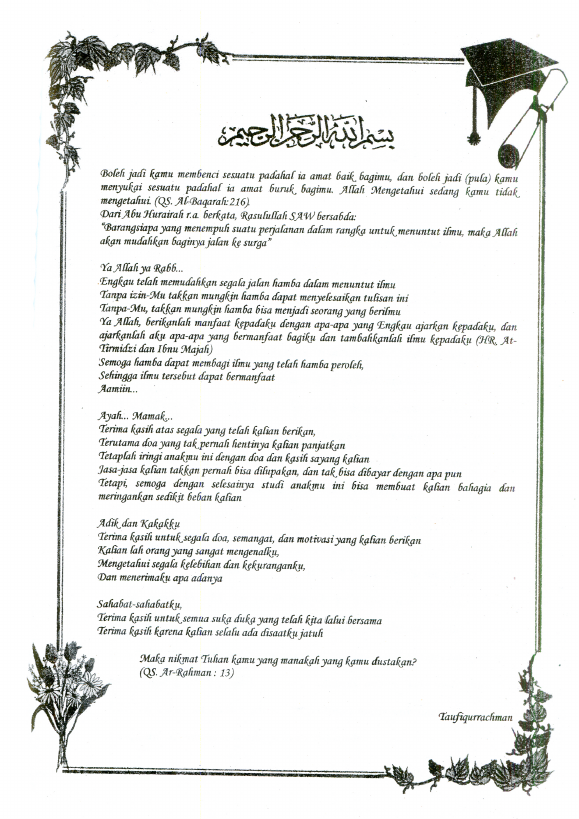 بسم الله الرحمن الرحيم
Boleh jadi kamu membenci sesuatu padahal ia amat baik bagimu, dan boleh jadi (pula) kamu
menyukai sesuatu padahal ia amat buruk bagimu. Allah Mengetahui sedang kamu tidak
mengetahui. (QS. Al-Baqarah:216).
Dari Abu Hurairah r.a. berkata, Rasulullah SAW bersabda:
"Barangsiapa yang menempuh suatu perjalanan dalam rangka untuk menuntut ilmu, maka Allah
akan mudahkan baginya jalan ke surga"
Ya Allah ya Rabb...
Engkau telah memudahkan segala jalan hamba dalam menuntut ilmu
Tanpa izin-Mu takkan mungkin hamba dapat menyelesaikan tulisan ini
Tanpa-Mu, takkan mungkin hamba bisa menjadi seorang yang berilmu
Ya Allah, berikanlah manfaat kepadaku dengan apa-apa yang Engkau ajarkan kepadaku, dan
ajarkanlah aku apa-apa yang bermanfaat bagiku dan tambahkanlah ilmu kepadaku (HR. At-
Tirmidzi dan Ibnu Majah)
Semoga hamba dapat membagi ilmu yang telah hamba peroleh,
Sehingga ilmu tersebut dapat bermanfaat
Aamiin...
Ayah... Mamak...
Terima kasih atas segala yang telah kalian berikan,
Terutama doa yang tak pernah hentinya kalian panjatkan
Tetaplah iringi anakmu ini dengan doa dan kasih sayang kalian
Jasa-jasa kalian takkan pernah bisa dilupakan, dan tak bisa dibayar dengan apa pun
Tetapi, semoga dengan selesainya studi anakmu ini bisa membuat kalian bahagia dan
meringankan sedikit beban kalian
Adik dan Kakakku
Terima kasih untuk segala doa, semangat, dan motivasi yang kalian berikan
Kalian lah orang yang sangat mengenalku,
Mengetahui segala kelebihan dan kekuranganku,
Dan menerimaku apa adanya
Sahabat-sahabatku,
Terima kasih untuk semua suka duka yang telah kita lalui bersama
Terima kasih karena kalian selalu ada disaatku jatuh
Maka nikmat Tuhan kamu yang manakah yang kamu dustakan?
(QS. Ar-Rahman : 13)
Taufiqurrachman